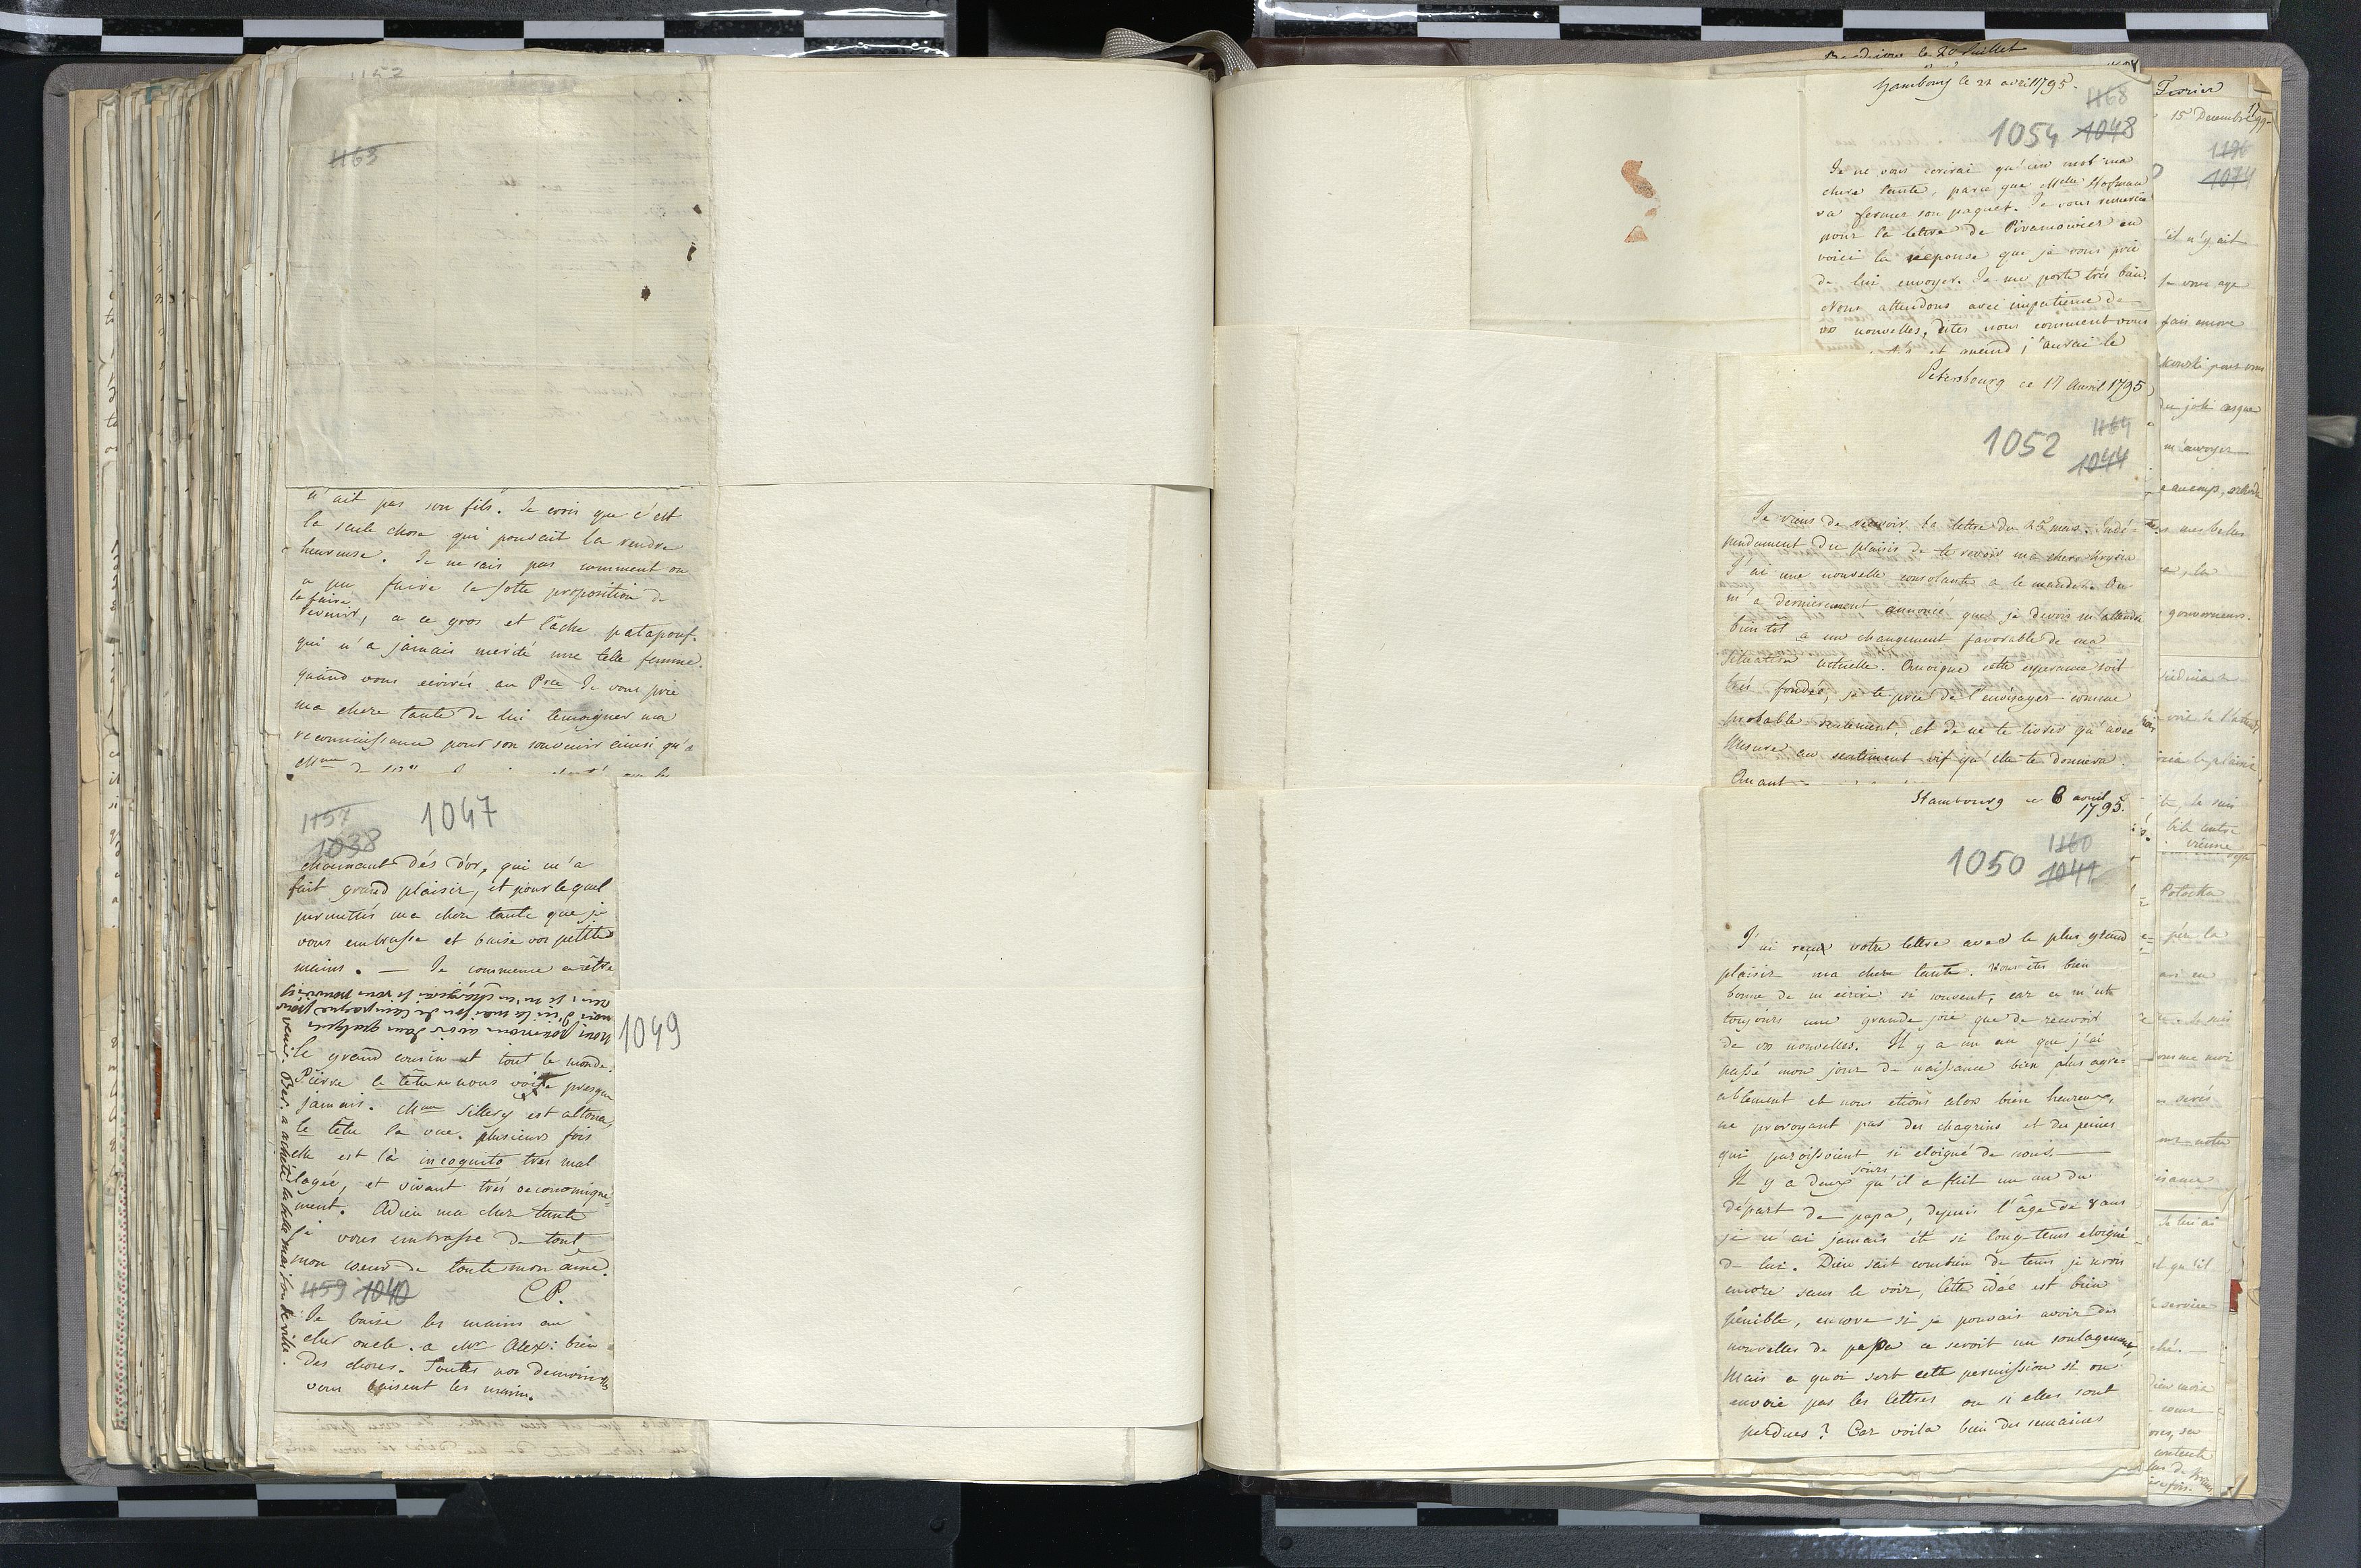 1157
1163
n'ait pas son fils. Je crois que c'est
la seule chose qui pouvait la rendre
heureuse. Je ne sais pas comment on
a pu faire la sotte proposition de
la faire
revenir, a ce gros et lâche patapouf.
qui n'a jamais merité une telle femme.
quand vous ecrirés au Pce Je vous prie
ma chere tante de lui temoigner ma
reconnaissance pour son souvenir ainsi qu'a
Mme de
1157 1047
1038
charmant dés d'or, qui m'a
fait grand plaisir, et pour lequel
permettés ma chere tante que je
vous embrasse et baise vos petites
mains. — Je commence a être
nous pourrions avoir dans quelques
mois d'ici la maison de campagne pour
1049
le grand cousin et tout le monde.
Pierre le têtu ne nous voit presque
jamais. Mme Sillery est altona,
le têtu la vue. plusieurs fois
elle est là incognito très mal
logée, et vivant très oeconomique-
ment. Adieu ma chere tante
je vous embrasse de tout
mon coeur de toute mon ame.
1159 1040 CP.
Je baise les mains au
cher oncle. a Mr Alex: bien
des choses. Toutes nos demoiselles
vous baisent les mains.
venir. Ber. a acheté la belle maison de ville.
le 20 Juillet
hambourg le 21 avril 1795.
1168
1054 1048
Je ne vous ecrirai qu'un mot ma
chere tante, parce que Melle Hofman
va fermer son paquet. Je vous remercie
pour la lettre de Piramowicz en
voici la reponse que je vous prie
de lui envoyer. Je me porte très bien.
Nous attendons avec impatience de
vos nouvelles, dites nous comment vous
et quand j'aurai le
Petersbourg ce 17 Avril 1795
1164
1052 1044
Je viens de recevoir ta lettre du 25 mars. Indé-
pendament du plaisir de te revoir ma chere Krysia
J'ai une nouvelle consolante a te mander. On
m'a dernierement annoncé que je devois m'attendre
bientôt a un changement favorable de ma
situation actuelle. Quoique cette esperance soit
très fondée, je te prie de l'envisager comme
probable seulement, et de ne te livrer qu'avec
Mesure au sentiment vif qu'elle te donnera.
Quant
Hambourg ce 6 avril
1795.
1160
1050 1041
J'ai reçu votre lettre avec le plus grand
plaisir ma chere tante. vous êtes bien
bonne de m'ecrire si souvent, car ce m'est
toujours une grande joie que de recevoir
de vos nouvelles. Il y a un an que j'ai
passé mon jour de naissance bien plus agré-
ablement et nous etions alors bien heureux,
ne prevoyant pas des chagrins et des peines
qui paroissoient si eloigné de nous. —
Il y a deux jours qu'il a fait un an du
départ de papa, depuis l'âge de 8 ans
je n'ai jamais été si long-tems eloigné
de lui. Dieu sait combien de tems je serai
encore sans le voir, Cette idée est bien
pénible, encore si je pouvais avoir des
nouvelles de papa ce seroit un soulagement,
Mais a quoi sert cette permission si on
envoie pas les lettres ou si elles sont
perdues? Car voila bien des semaines
Fevrier
15 Decembre 1799
1196
1074
s'il n'y ait
fais encore
m'envoyer
gouverneurs.
Potocka
Je suis
comme moi
Je lui ai
et qu'il
service
contente